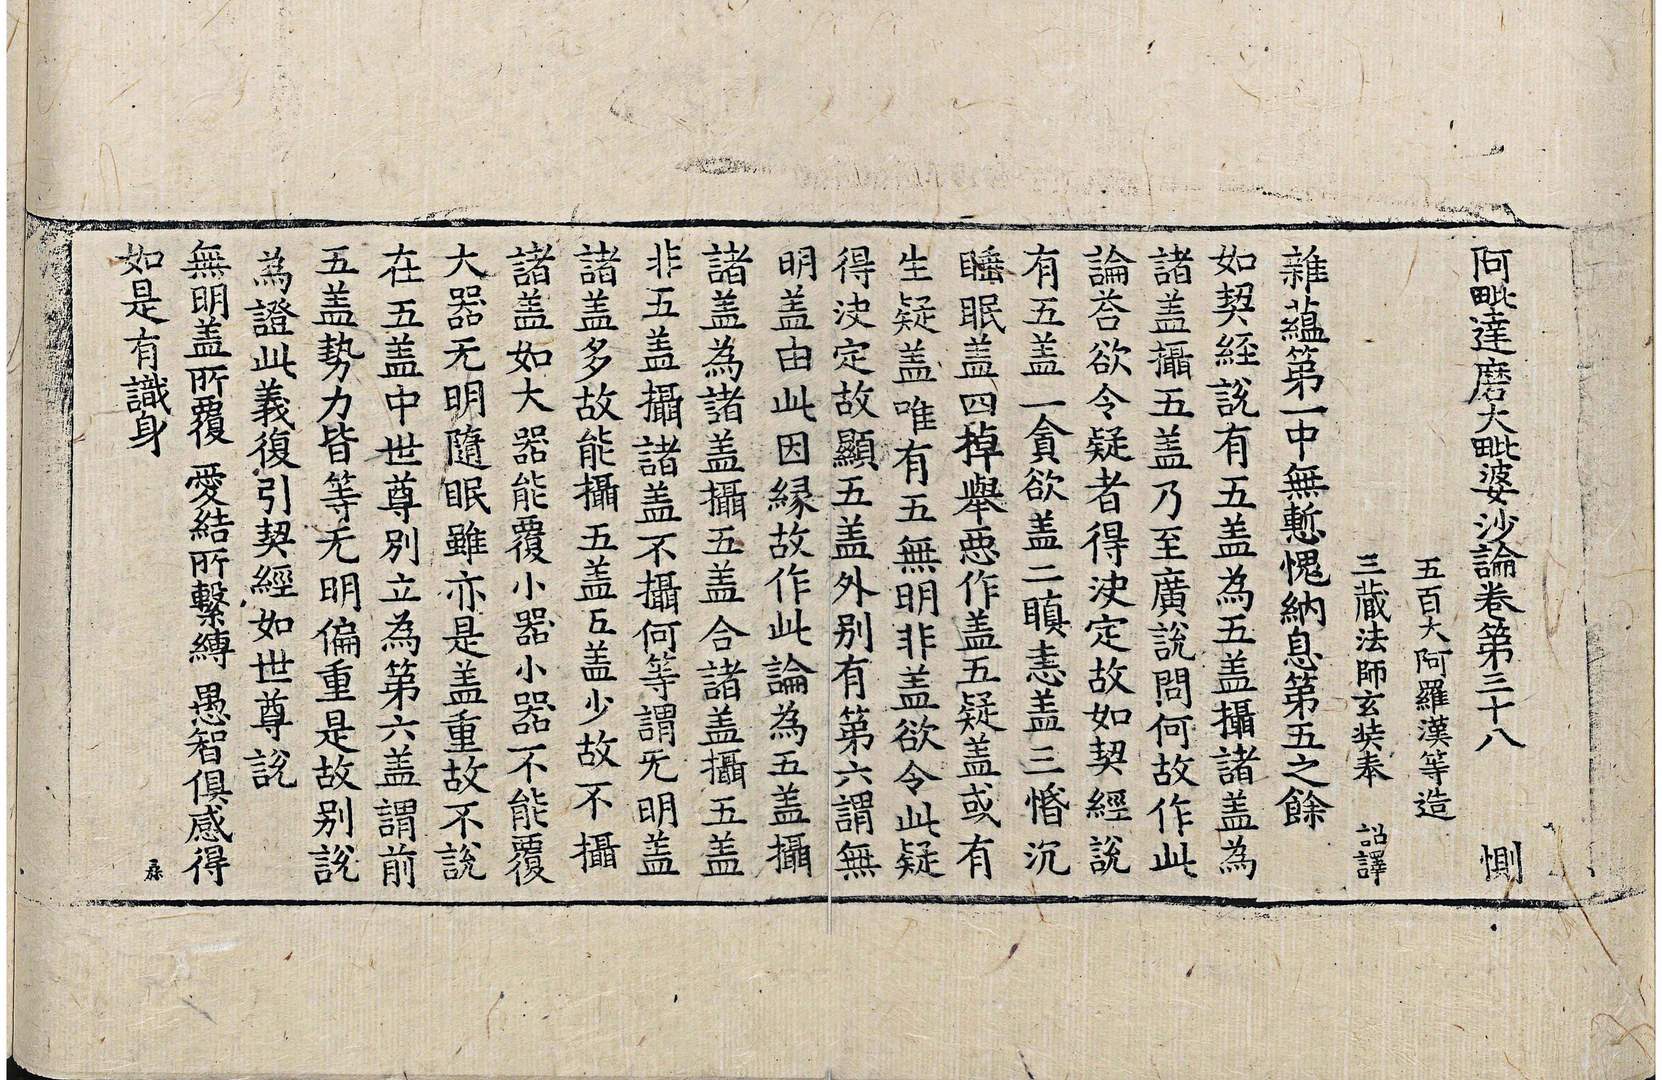 阿毗達磨大毗婆沙論卷第三十八 惻
五百大阿羅漢等造
三藏法師玄奘奉 詔譯
雜蘊第一中無慙愧納息第五之餘
如契經說有五盖為五盖攝諸盖為
諸盖攝五盖乃至廣說問何故作此
論荅欲令疑者得决定故如契經說
有五盖一貪欲盖二瞋恚盖三惛沉
睡眠盖四掉舉惡作盖五疑盖或有
生疑盖唯有五無明非盖欲令此疑
得决定故顯五盖外別有第六謂無
明盖由此因縁故作此論為五盖攝
諸盖為諸盖攝五盖合諸盖攝五盖
非五盖攝諸盖不攝何等謂无明盖
諸盖多故能攝五盖五盖少故不攝
諸盖如大器能覆小器小器不能覆
大器无明隨眠雖亦是盖重故不說
在五盖中世尊別立為第六盖謂前
五盖勢力皆等无明偏重是故別說
為證此義復引契經如世尊說
無明盖所覆 愛結所繫縛 愚智俱感得
如是有識身